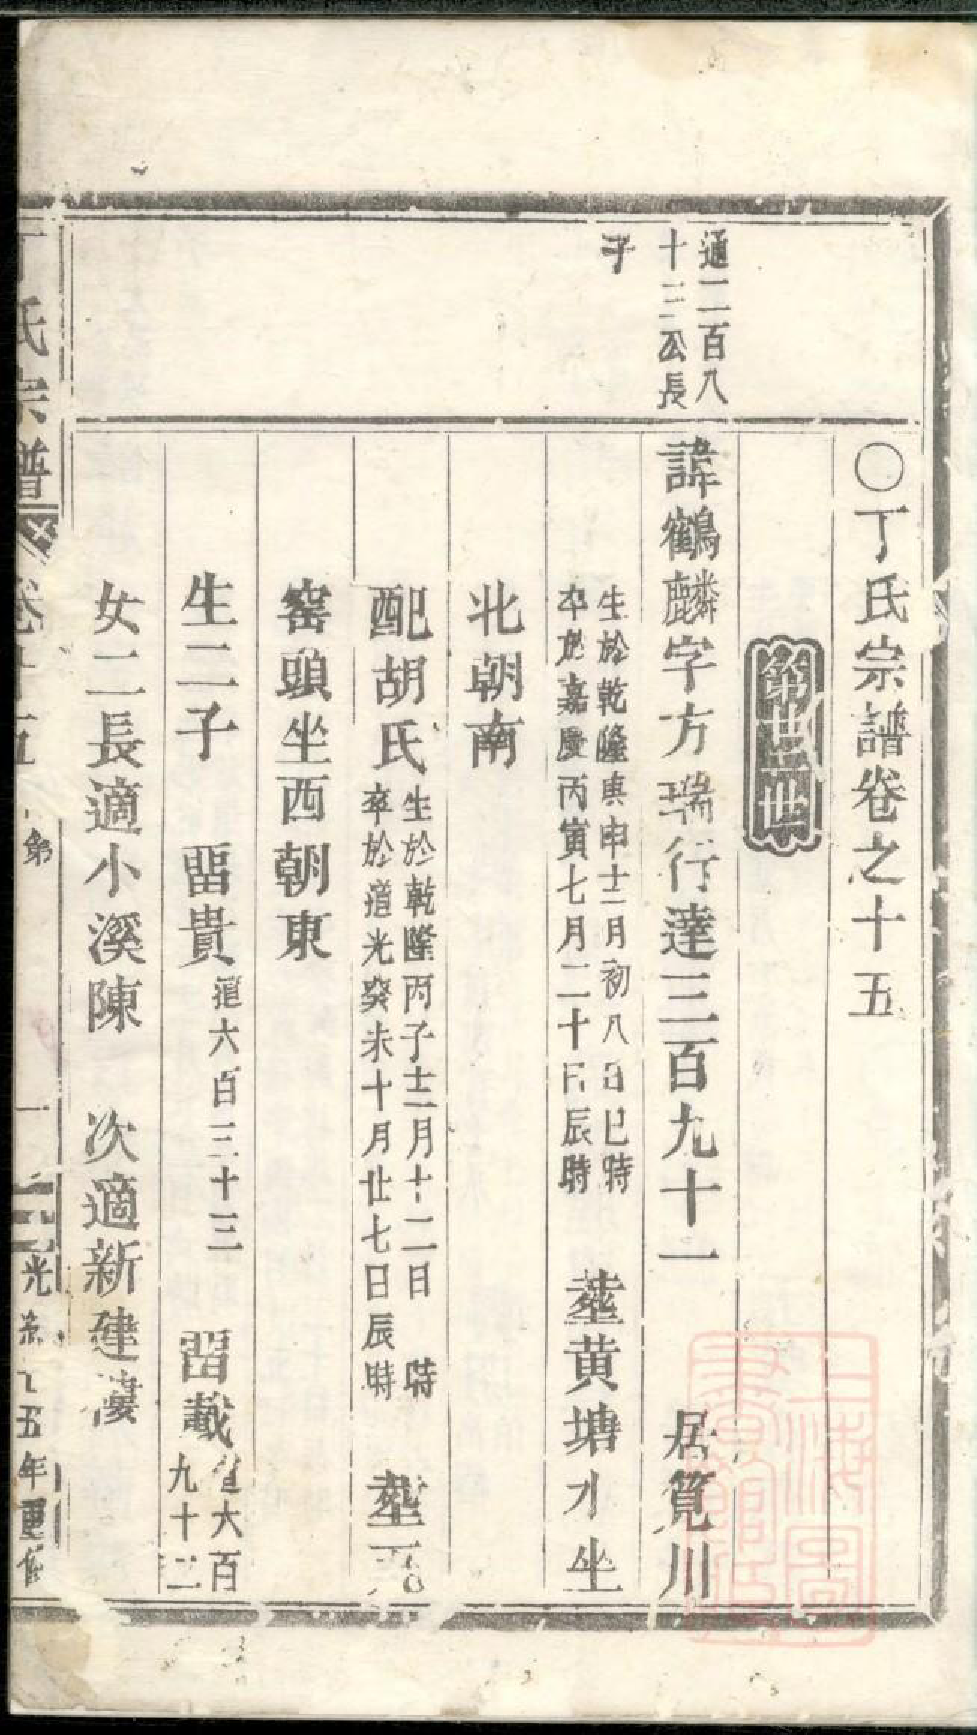 〇丁氏宗譜卷之十五
第世
通二百八
十三公長
子
諱鶴麟字方瑞行達三百九十一 居筧川
生於乾隆庚申十二月初八日巳時
卒於嘉慶丙寅七月二十日辰時
塟黄塘水坐
北朝南
配胡氏
生於乾隆丙子十二月十二日 時
卒於道光癸未十月廿七日辰時
塟瓦
窑頭坐西朝東
生二子 畱貴
道六百三十三
畱載
道六百
九十二
女二長適小溪陳 次適新建凄
丁氏宗譜 卷十五 第一 光緒 五年重修
上海圖書館藏